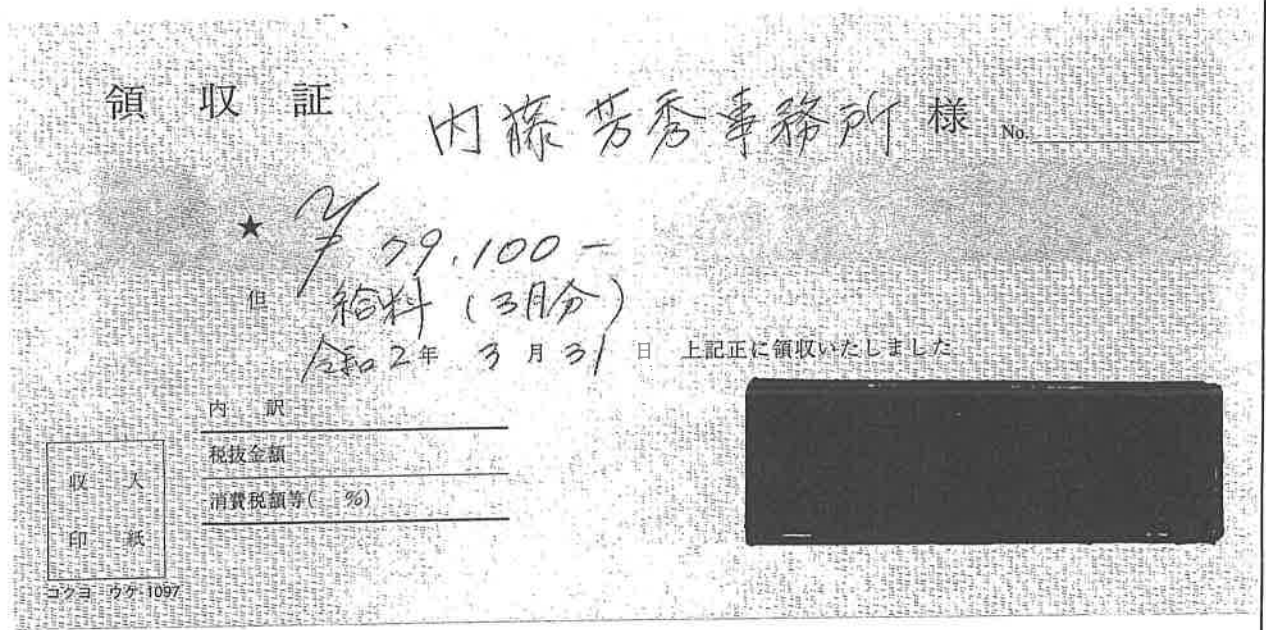 領収証 内藤芳秀事務所 様 No.
★ ¥79,100-
但 給料(3月分)
令和2年 3月31日 上記正に領収いたしました
内訳
税抜金額
消費税額等( %)
収入
印紙
コクヨ ウケ-1097